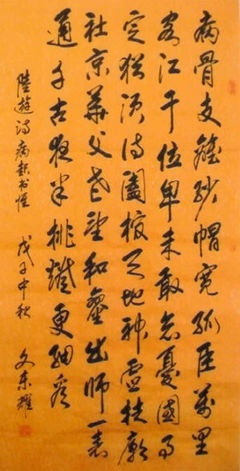 病骨支離紗帽寬孤臣萬里
客江干位卑未敢忘憂國事
定猶須待闔棺天地神靈扶廟
社京華父老望和鑾出師一表
通千古夜半挑燈更細看
陸游詩病起书懷 戊子中秋 文東耀